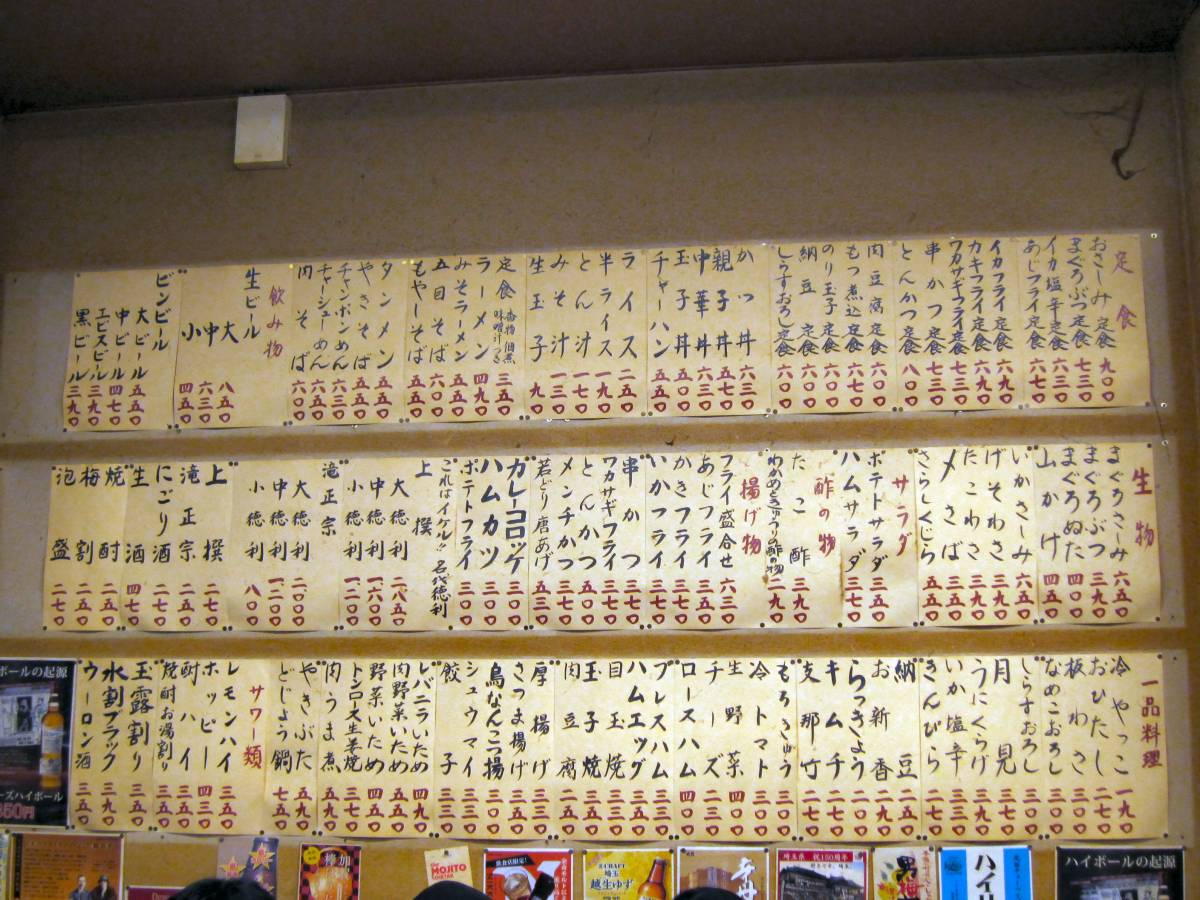 定食
おさしみ定食 九〇〇
まぐろぶつ定食 七三〇
イカ塩辛定食 六二〇
あじフライ定食 六七〇
イカフライ定食 六九〇
カキフライ定食 六九〇
ワカサギフライ定食 七三〇
串かつ定食 七三〇
とんかつ定食 八〇〇
肉豆腐定食 六〇〇
もつ煮込定食 六七〇
のり玉子定食 六〇〇
納豆定食 六〇〇
しらすおろし定食 六〇〇
かつ丼 六三〇
親子丼 五七〇
中華丼 六三〇
玉子丼 五〇〇
チャーハン 五五〇
ライス 二五〇
半ライス 一九〇
とん汁 一七〇
みそ汁 一三〇
生玉子 九〇
定食 三五〇
ラーメン 四九〇
みそラーメン 五五〇
五目そば 六〇〇
もやしそば 五五〇
タンメン 五五〇
やきそば 五五〇
チャンポンめん 六〇〇
チャーシューめん 六五〇
肉そば 六〇〇
飲み物
生ビール
大 八五〇
中 六三〇
小 四五〇
ビンビール
大ビール 五五〇
中ビール 四七〇
エビスビール 三九〇
黒ビール 三九〇
生物
まぐろさしみ 六五〇
まぐろぶつ 三九〇
まぐろぬた 四〇〇
山かけ 四五〇
いかさしみ 六五〇
げそわさ 三九〇
たこわさ 三九〇
〆さば 三五〇
さらしくじら 五五〇
サラダ
ポテトサラダ 三五〇
ハムサラダ 三七〇
酢の物
たこ酢 三九〇
わかめときゅうりの酢の物 二九〇
揚げ物
フライ盛合せ 六三〇
あじフライ 三五〇
かきフライ 三七〇
いかフライ 三七〇
串かつ 三七〇
ワカサギフライ 三七〇
とんかつ 五五〇
メンチかつ 三七〇
若どり唐あげ 五三〇
カレーコロッケ 三〇〇
ハムカツ 三〇〇
ポテトフライ 三〇〇
これはイケル!! 名代徳利
上撰
大徳利 二八五〇
中徳利 一六〇〇
小徳利 一二〇〇
滝正宗
大徳利 二〇〇〇
中徳利 一二〇〇
小徳利 八〇〇
上撰 二七〇
滝正宗 二五〇
にごり酒 二七〇
生酒 四七〇
焼酎 二五〇
梅割 二五〇
泡盛 二七〇
一品料理
冷やっこ 一九〇
おひたし 二七〇
板わさ 三〇〇
なめこおろし 三〇〇
しらすおろし 三〇〇
月見 二三〇
うにくらげ 三九〇
いか塩辛 三三〇
きんぴら 二七〇
納豆 一五〇
お新香 二九〇
らっきょう 二七〇
キムチ 三三〇
支那竹 二七〇
もろきゅう 三〇〇
冷トマト 三〇〇
生野菜 四〇〇
チーズ 三〇〇
ロースハム 四〇〇
プレスハム 三五〇
ハムエッグ 三五〇
目玉焼 三〇〇
玉子焼 三五〇
肉豆腐 二五〇
厚揚げ 三三〇
さつま揚げ 三五〇
鳥なんこつ揚 三〇〇
シュウマイ 三三〇
餃子 三三〇
レバニラいため 四九〇
肉野菜いため 五五〇
野菜いため 四五〇
トン口大生姜焼 三七〇
肉うま煮 五九〇
やきぶた 五五〇
どじょう鍋 七五〇
サワー類
レモンハイ 三五〇
ホッピー 四三〇
酎ハイ 三五〇
焼酎お湯割り 三五〇
玉露割り 三五〇
水割ブラック 三五〇
ウーロン酒 三五〇
ボールの起源
ーズハイボール
350円
MOJITO
棒加
CRAFT
埼玉
越生ゆず
埼玉県 祝150周年
男梅
ハイ
ハイボールの起源